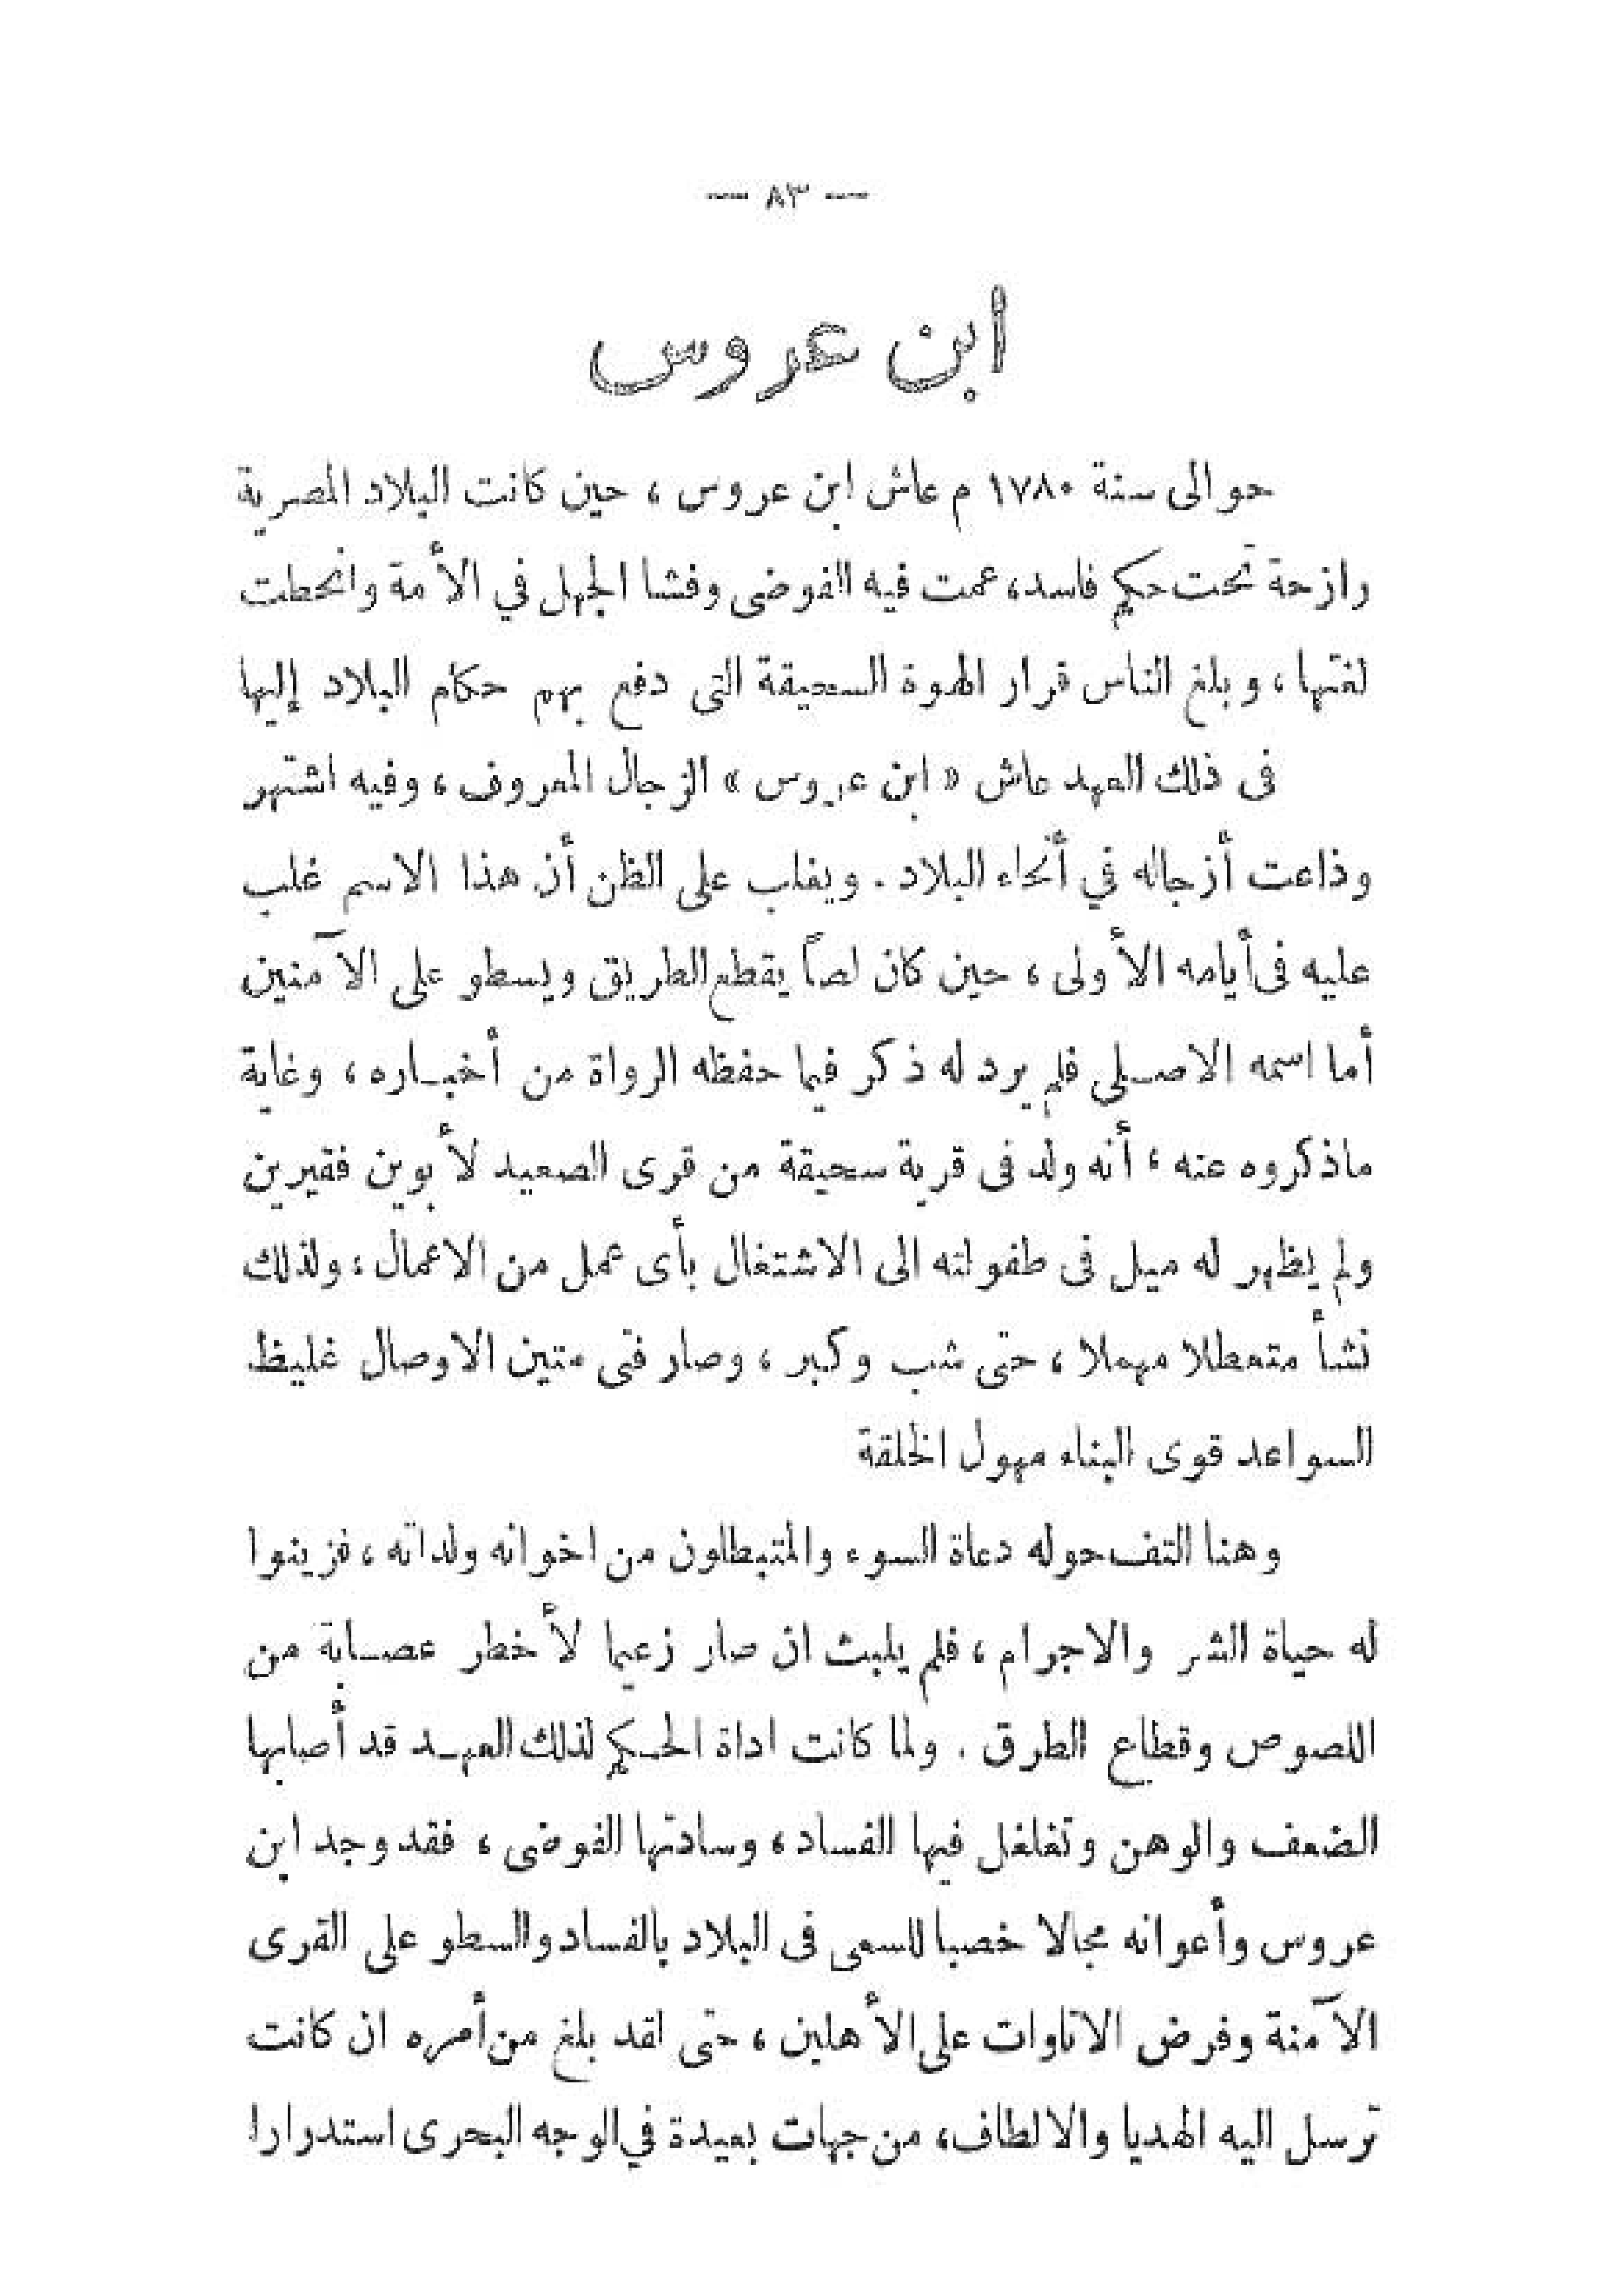 — ٨٣ —
ابن عروس
حوالى سنة ١٧٨٠ م عاش ابن عروس ، حين كانت البلاد المصرية
رازحة تحت حكم فاسد، عمت فيه الفوضى وفشا الجهل في الأمة وانحطت
لغتها ، وبلغ الناس قرار الهوة السحيقة التى دفع بهم حكام البلاد إليها
فى ذلك العهد عاش « ابن عروس » الزجال المعروف ، وفيه اشتهر
وذاعت أزجاله في أنحاء البلاد . ويغلب على الظن أن هذا الاسم غلب
عليه فى أيامه الأولى ، حين كان لصاً يقطع الطريق ويسطو على الآمنين
أما اسمه الاصلى فلم يرد له ذكر فيما حفظه الرواة من أخباره ، وغاية
ماذكروه عنه ، أنه ولد فى قرية سحيقة من قرى الصعيد لأبوين فقيرين
ولم يظهر له ميل فى طفولته الى الاشتغال بأى عمل من الاعمال ، ولذلك
نشأ متعطلا مهملا ، حتى شب وكبر ، وصار فتى متين الاوصال غليظ
السواعد قوى البناء مهول الخلقة
وهنا التف حوله دعاة السوء والمتبطلون من اخوانه ولداته ، فزينوا
له حياة الشر والاجرام ، فلم يلبث ان صار زعيما لأخطر عصابة من
اللصوص وقطاع الطرق . ولما كانت اداة الحكم لذلك العهد قد أصابها
الضعف والوهن وتغلغل فيها الفساد ، وسادتها الفوضى ، فقد وجد ابن
عروس وأعوانه مجالا خصبا للسعى فى البلاد بالفساد والسطو على القرى
الآمنة وفرض الاتاوات على الأهلين ، حتى لقد بلغ من أمره ان كانت
ترسل اليه الهديا والالطاف، من جهات بعيدة في الوجه البحرى استدرارا